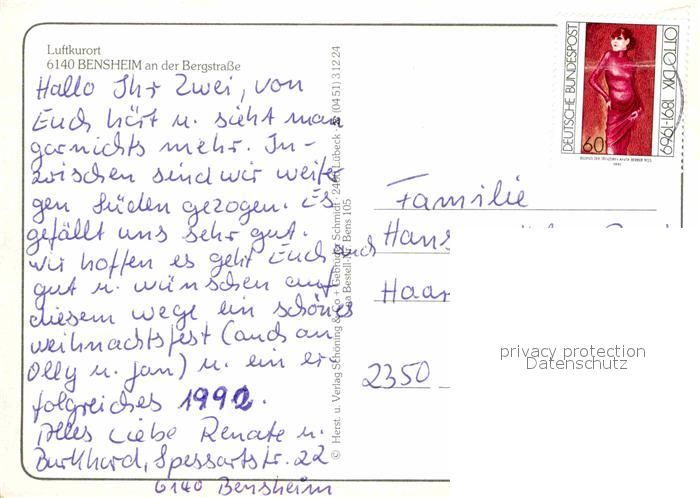 Luftkurort
6140 BENSHEIM an der Bergstraße
Hallo Ihr Zwei, von
Euch hört u. sieht man
garnichts mehr. In-
zwischen sind wir weiter
gen Süden gezogen. Es
gefällt uns sehr gut.
Wir hoffen es geht Euch auch
gut u. wünschen auf
diesem Wege ein schönes
Weihnachtsfest (auch an
Olly u. Jan) u. ein er-
folgreiches 1992.
Alles Liebe Renate u.
Burkhard, Spessartstr. 22
6140 Bensheim
© Herst. u. Verlag Schöning & Co + Gebrüder Schmidt 2400 Lübeck (0451) 31224
Bestell-Nr. Bens 105
DEUTSCHE BUNDESPOST
60
OTTO DIX 1891-1969
Familie
Hans
Haar
2350
privacy protection
Datenschutz